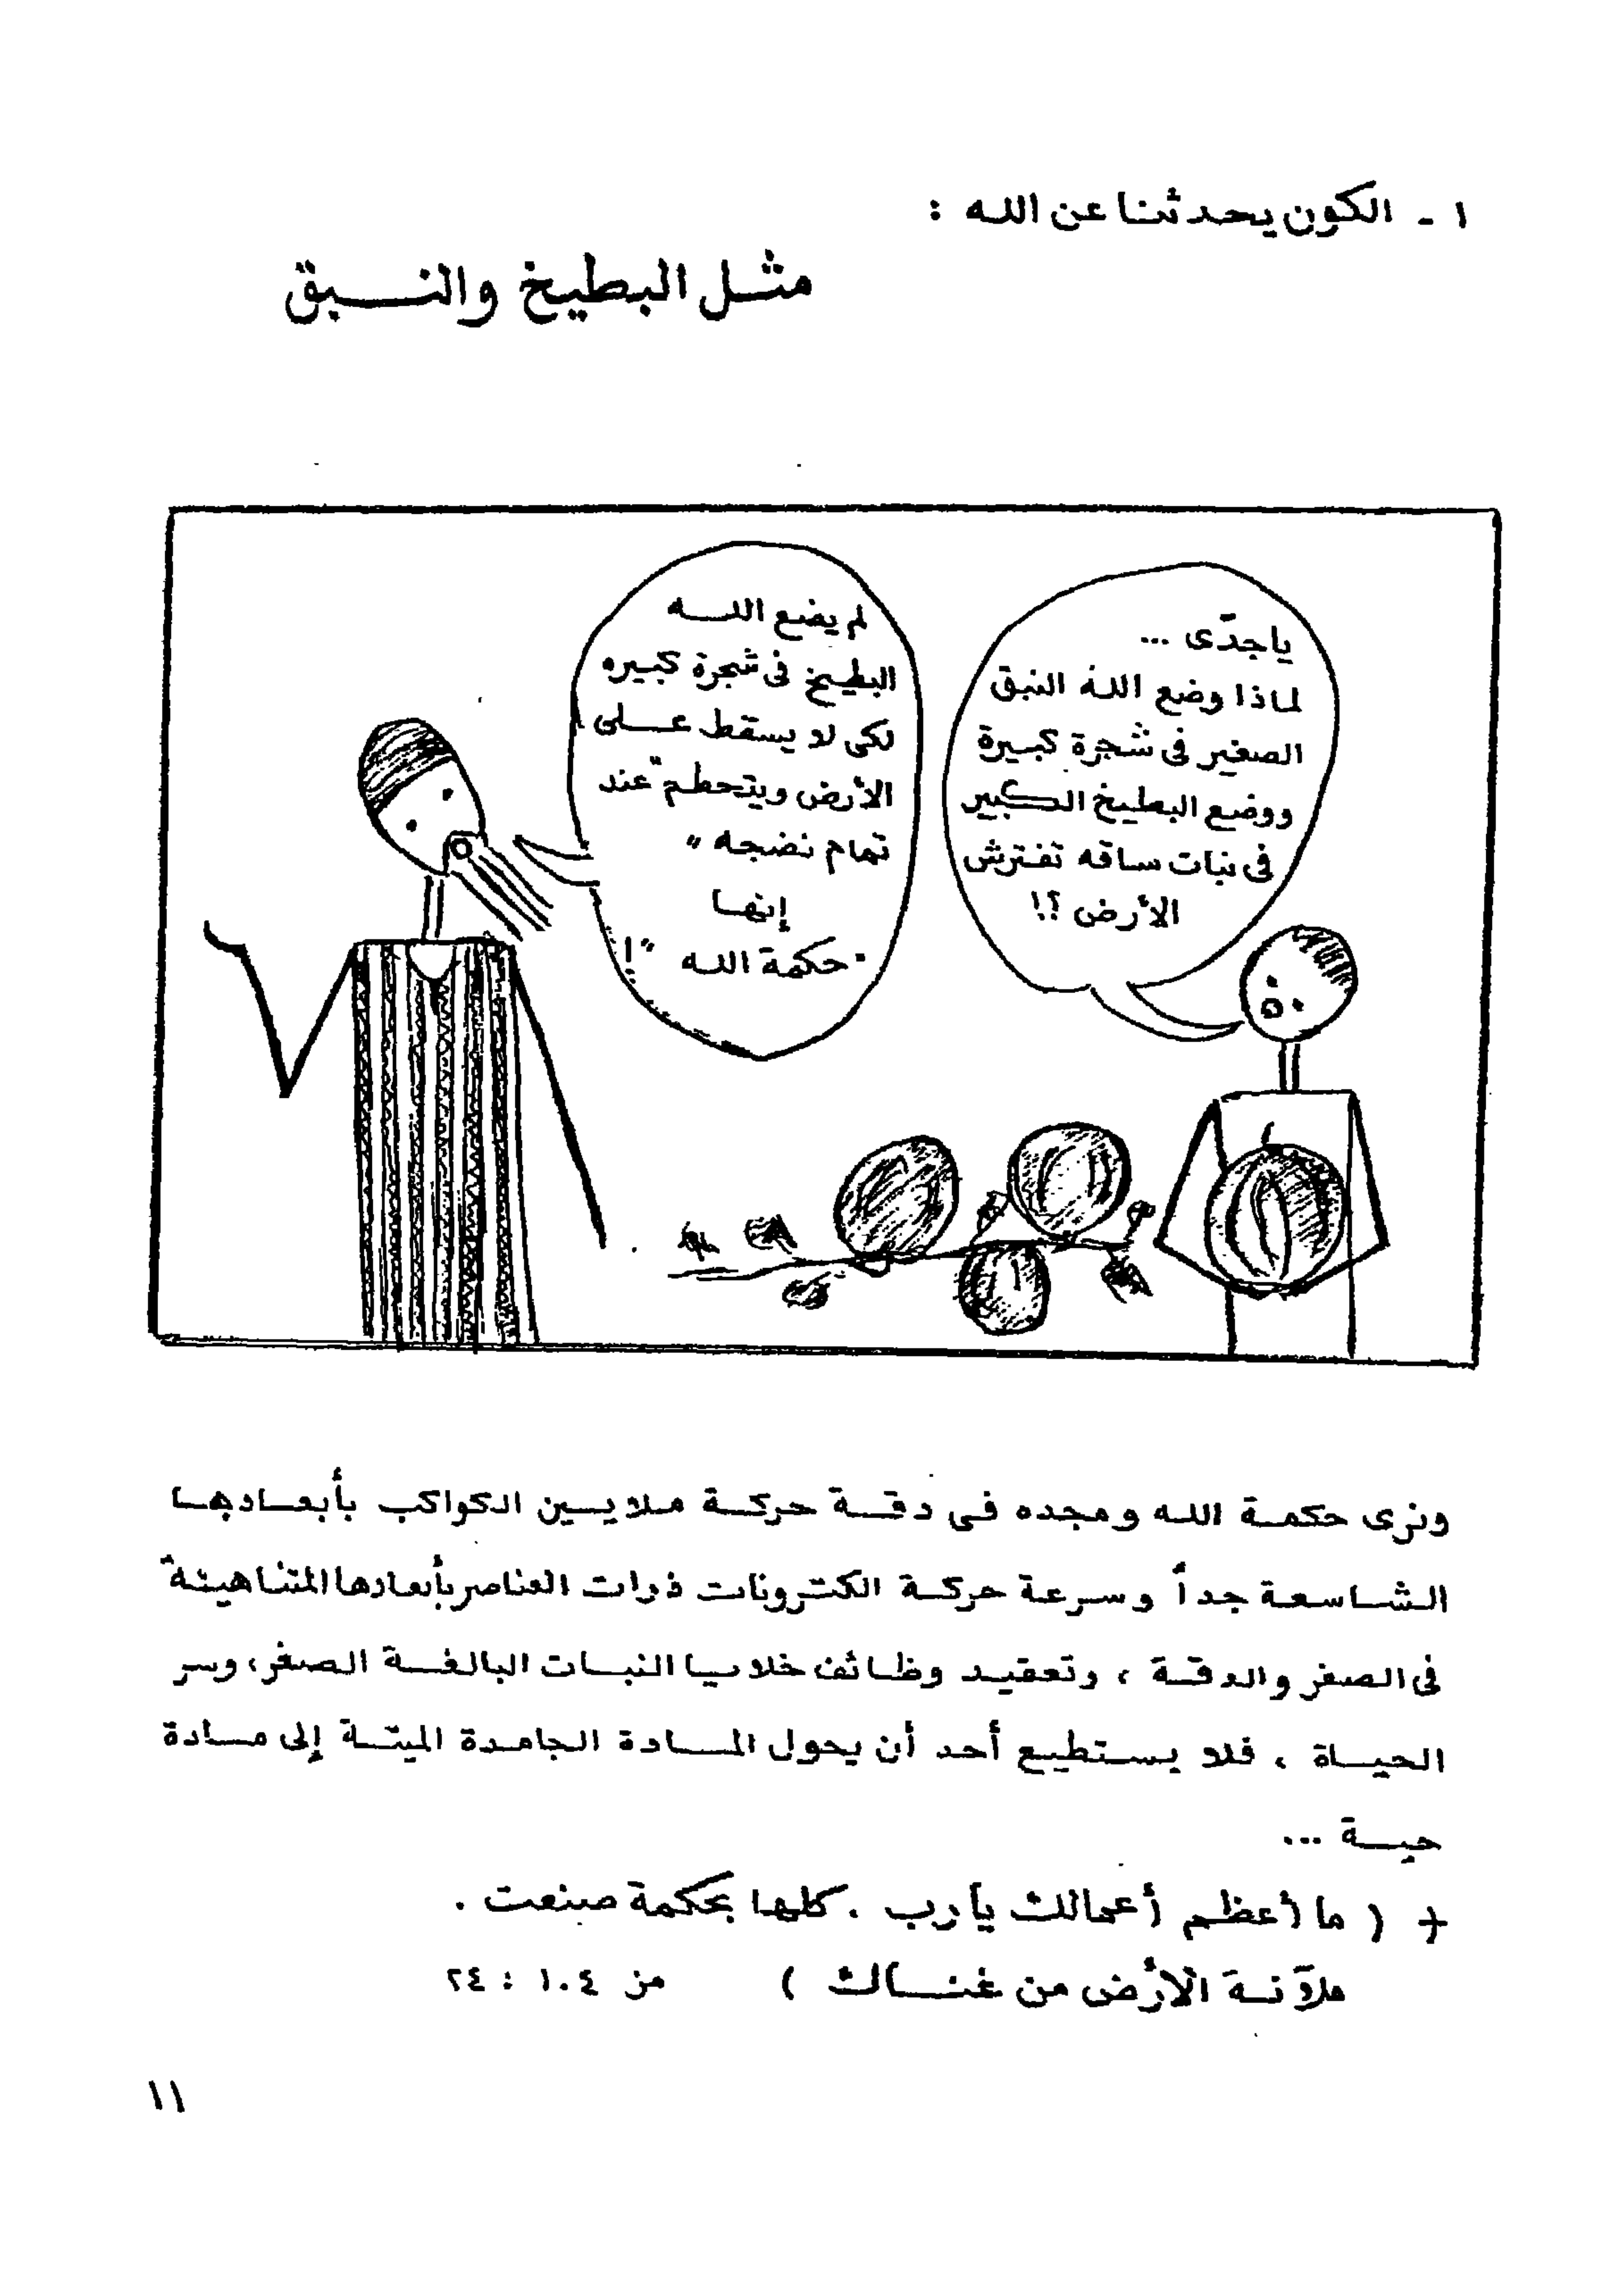 ١ - الكون يحدثنا عن الله :
مثل البطيخ والنبق
ياجدّى ...
لماذا وضع الله النبق
الصغير فى شجرة كبيرة
ووضع البطيخ الكبير
فى نبات ساقه تفترش
الأرض ؟!
لم يضع الله
البطيخ فى شجرة كبيره
لكى لا يسقط على
الأرض ويتحطم "عند
تمام نضجه "
إنها
"حكمة الله "!
ونرى حكمة الله ومجده فى دقة حركة ملايين الكواكب بأبعادها
الشاسعة جداً وسرعة حركة الكترونات ذرات العناصر بأبعادها المتناهية
فى الصغر والدقة ، وتعقيد وظائف خلايا النبات البالغة الصغر، وسر
الحياة ، فلا يستطيع أحد أن يحول المادة الجامدة الميتة إلى مادة
حية ...
+ ( ما أعظم أعمالك يارب . كلها بحكمة صنعت .
ملآنة الأرض من غناك ) مز ١٠٤ : ٢٤
١١